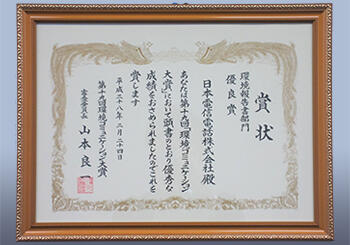 賞状
環境報告書部門
優良賞
日本電信電話株式会社殿
あなたは第十九回「環境コミュニケーション
大賞」において頭書のとおり優秀な
成績をおさめられましたのでこれを
賞します
平成二十八年二月二十四日
第十九回環境コミュニケーション大賞
審査委員長 山本良一